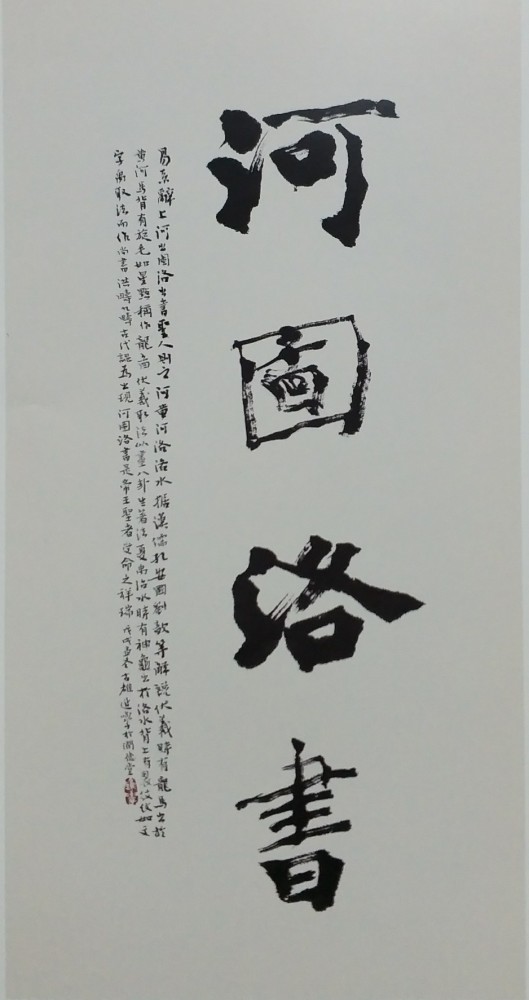 河圖洛書
易系辭上河出圖洛出書聖人則之河黃河洛洛水據漢儒孔安國劉歆等解說伏羲時有龍馬出於
黃河馬背有旋毛如星點稱作龍圖伏羲取法以畫八卦生蓍法夏禹治水時有神龜出於洛水背上有裂紋紋如文
字禹取法而作尚書洪疇九疇古代認為出現河圖洛書是帝王聖者受命之祥瑞戊戌孟冬古雄